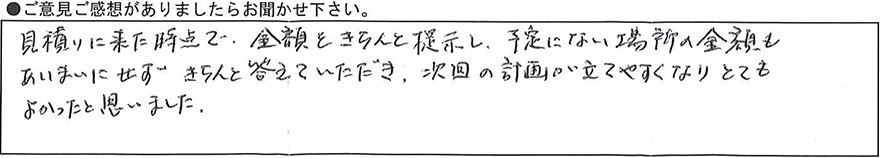 ●ご意見ご感想がありましたらお聞かせ下さい。
見積りに来た時点で、金額をきちんと提示し、予定にない場所の金額も
あいまいにせず きちんと答えていただき、次回の計画が立てやすくなりとても
よかったと思いました。